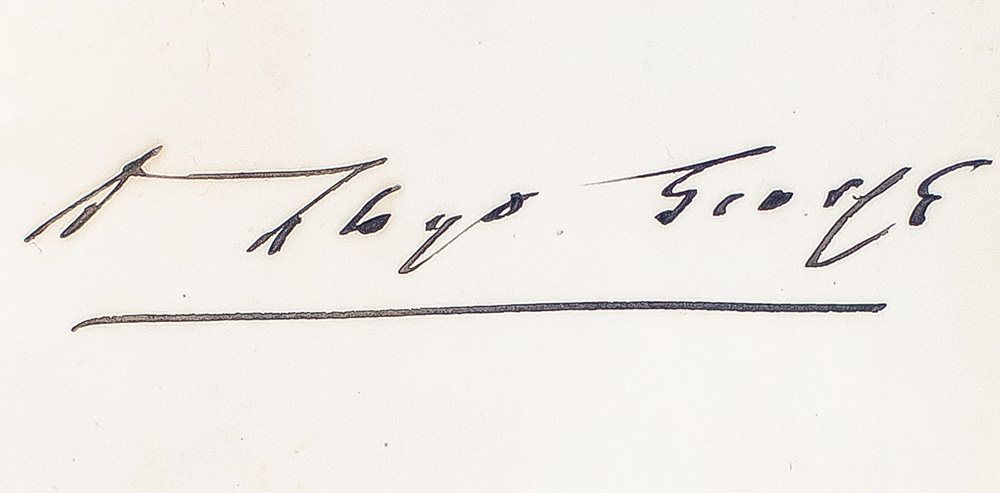 D Lloyd George